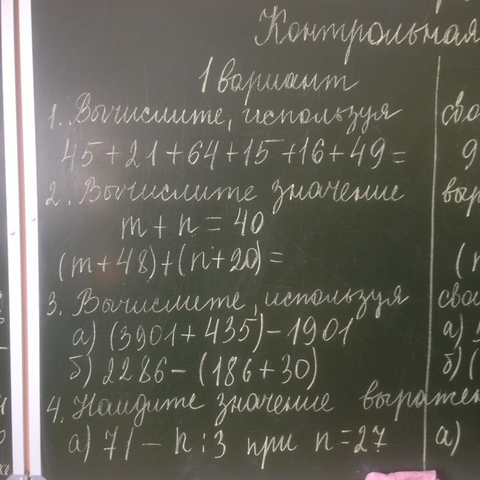 Контрольная
1 вариант
1. Вычислите, используя сво
45+21+64+15+16+49= 9
2. Вычислите значение выр
m + n = 40
(m+48)+(n+20)= (
3. Вычислите, используя свой
а) (3901+435)-1901 а)
б) 2286-(186+30) б) (
4. Найдите значение выражен
а) 71 - n:3 при n=27 а)